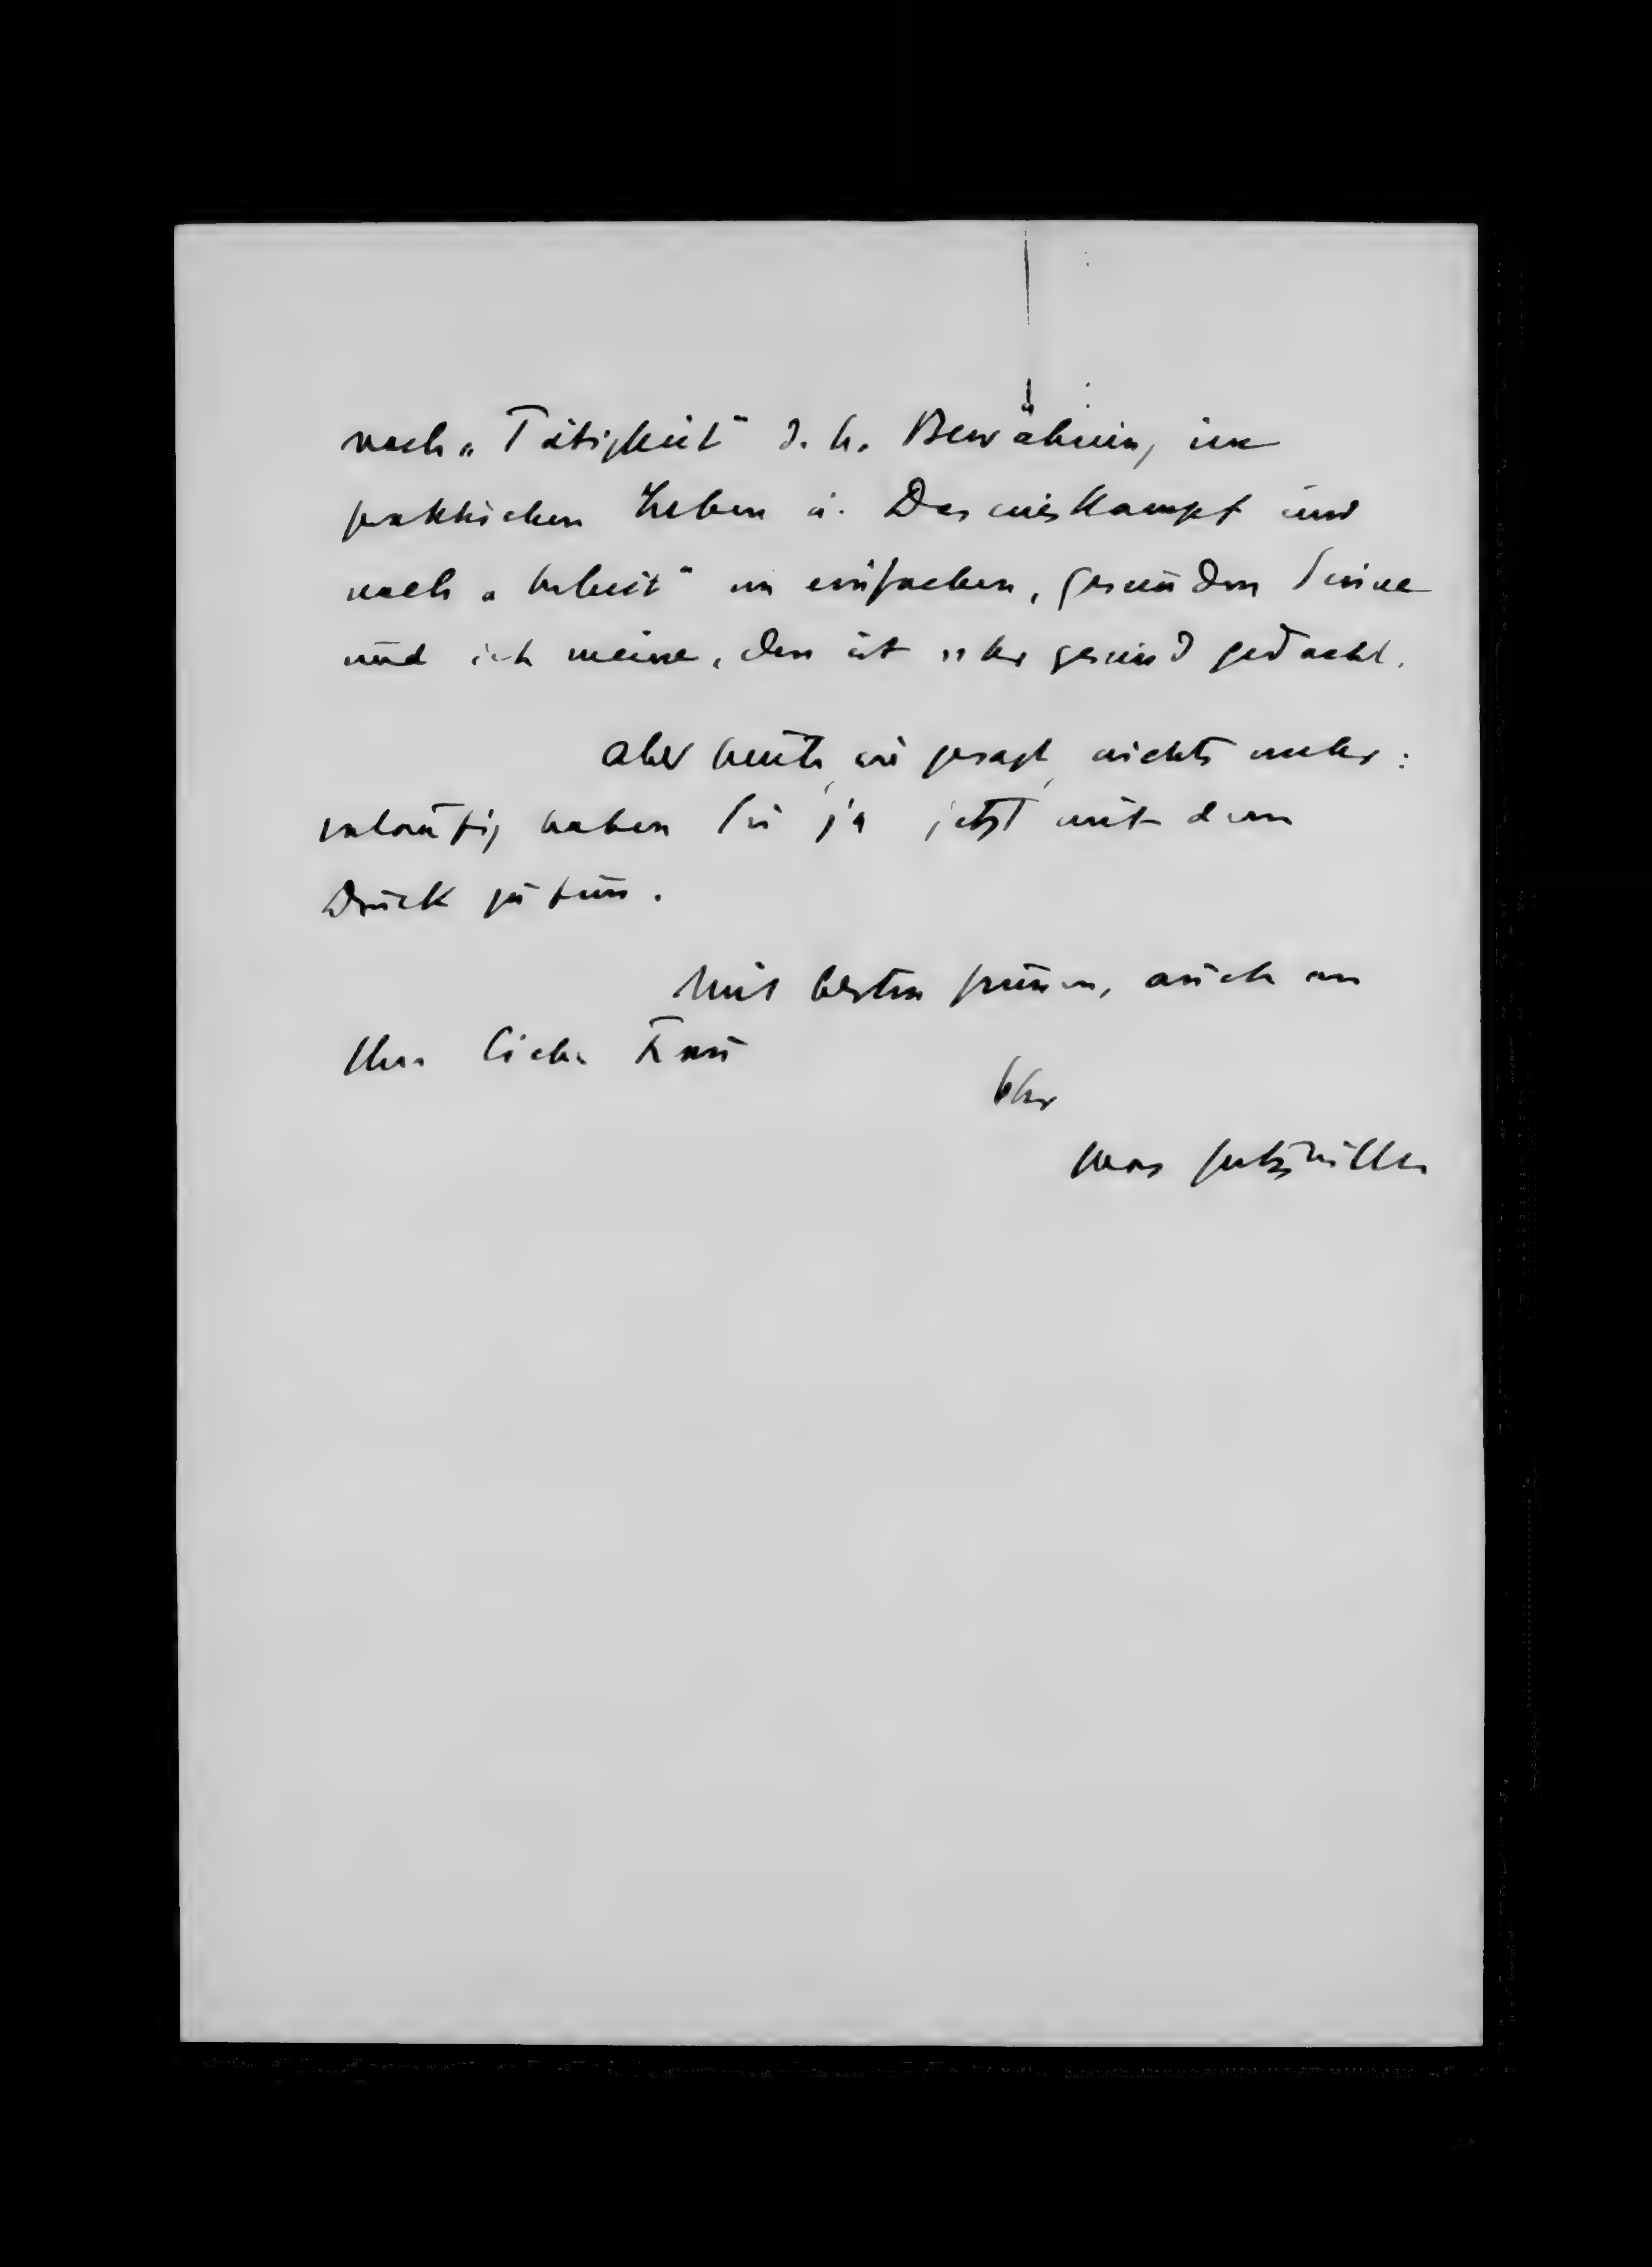 nach „Tätigkeit" d. h. Bewährung im
praktischen Leben u. Daseinskampf und
nach „Arbeit" im einfachen, gesunden Sinne
und ich meine, den ist sehr gesund gedacht.
Aber heute, wie gesagt, nichts mehr:
vorläufig haben Sie ja jetzt mit dem
Druck zu tun.
Mit besten Grüssen, auch an
Ihre liebe Frau
Ihr